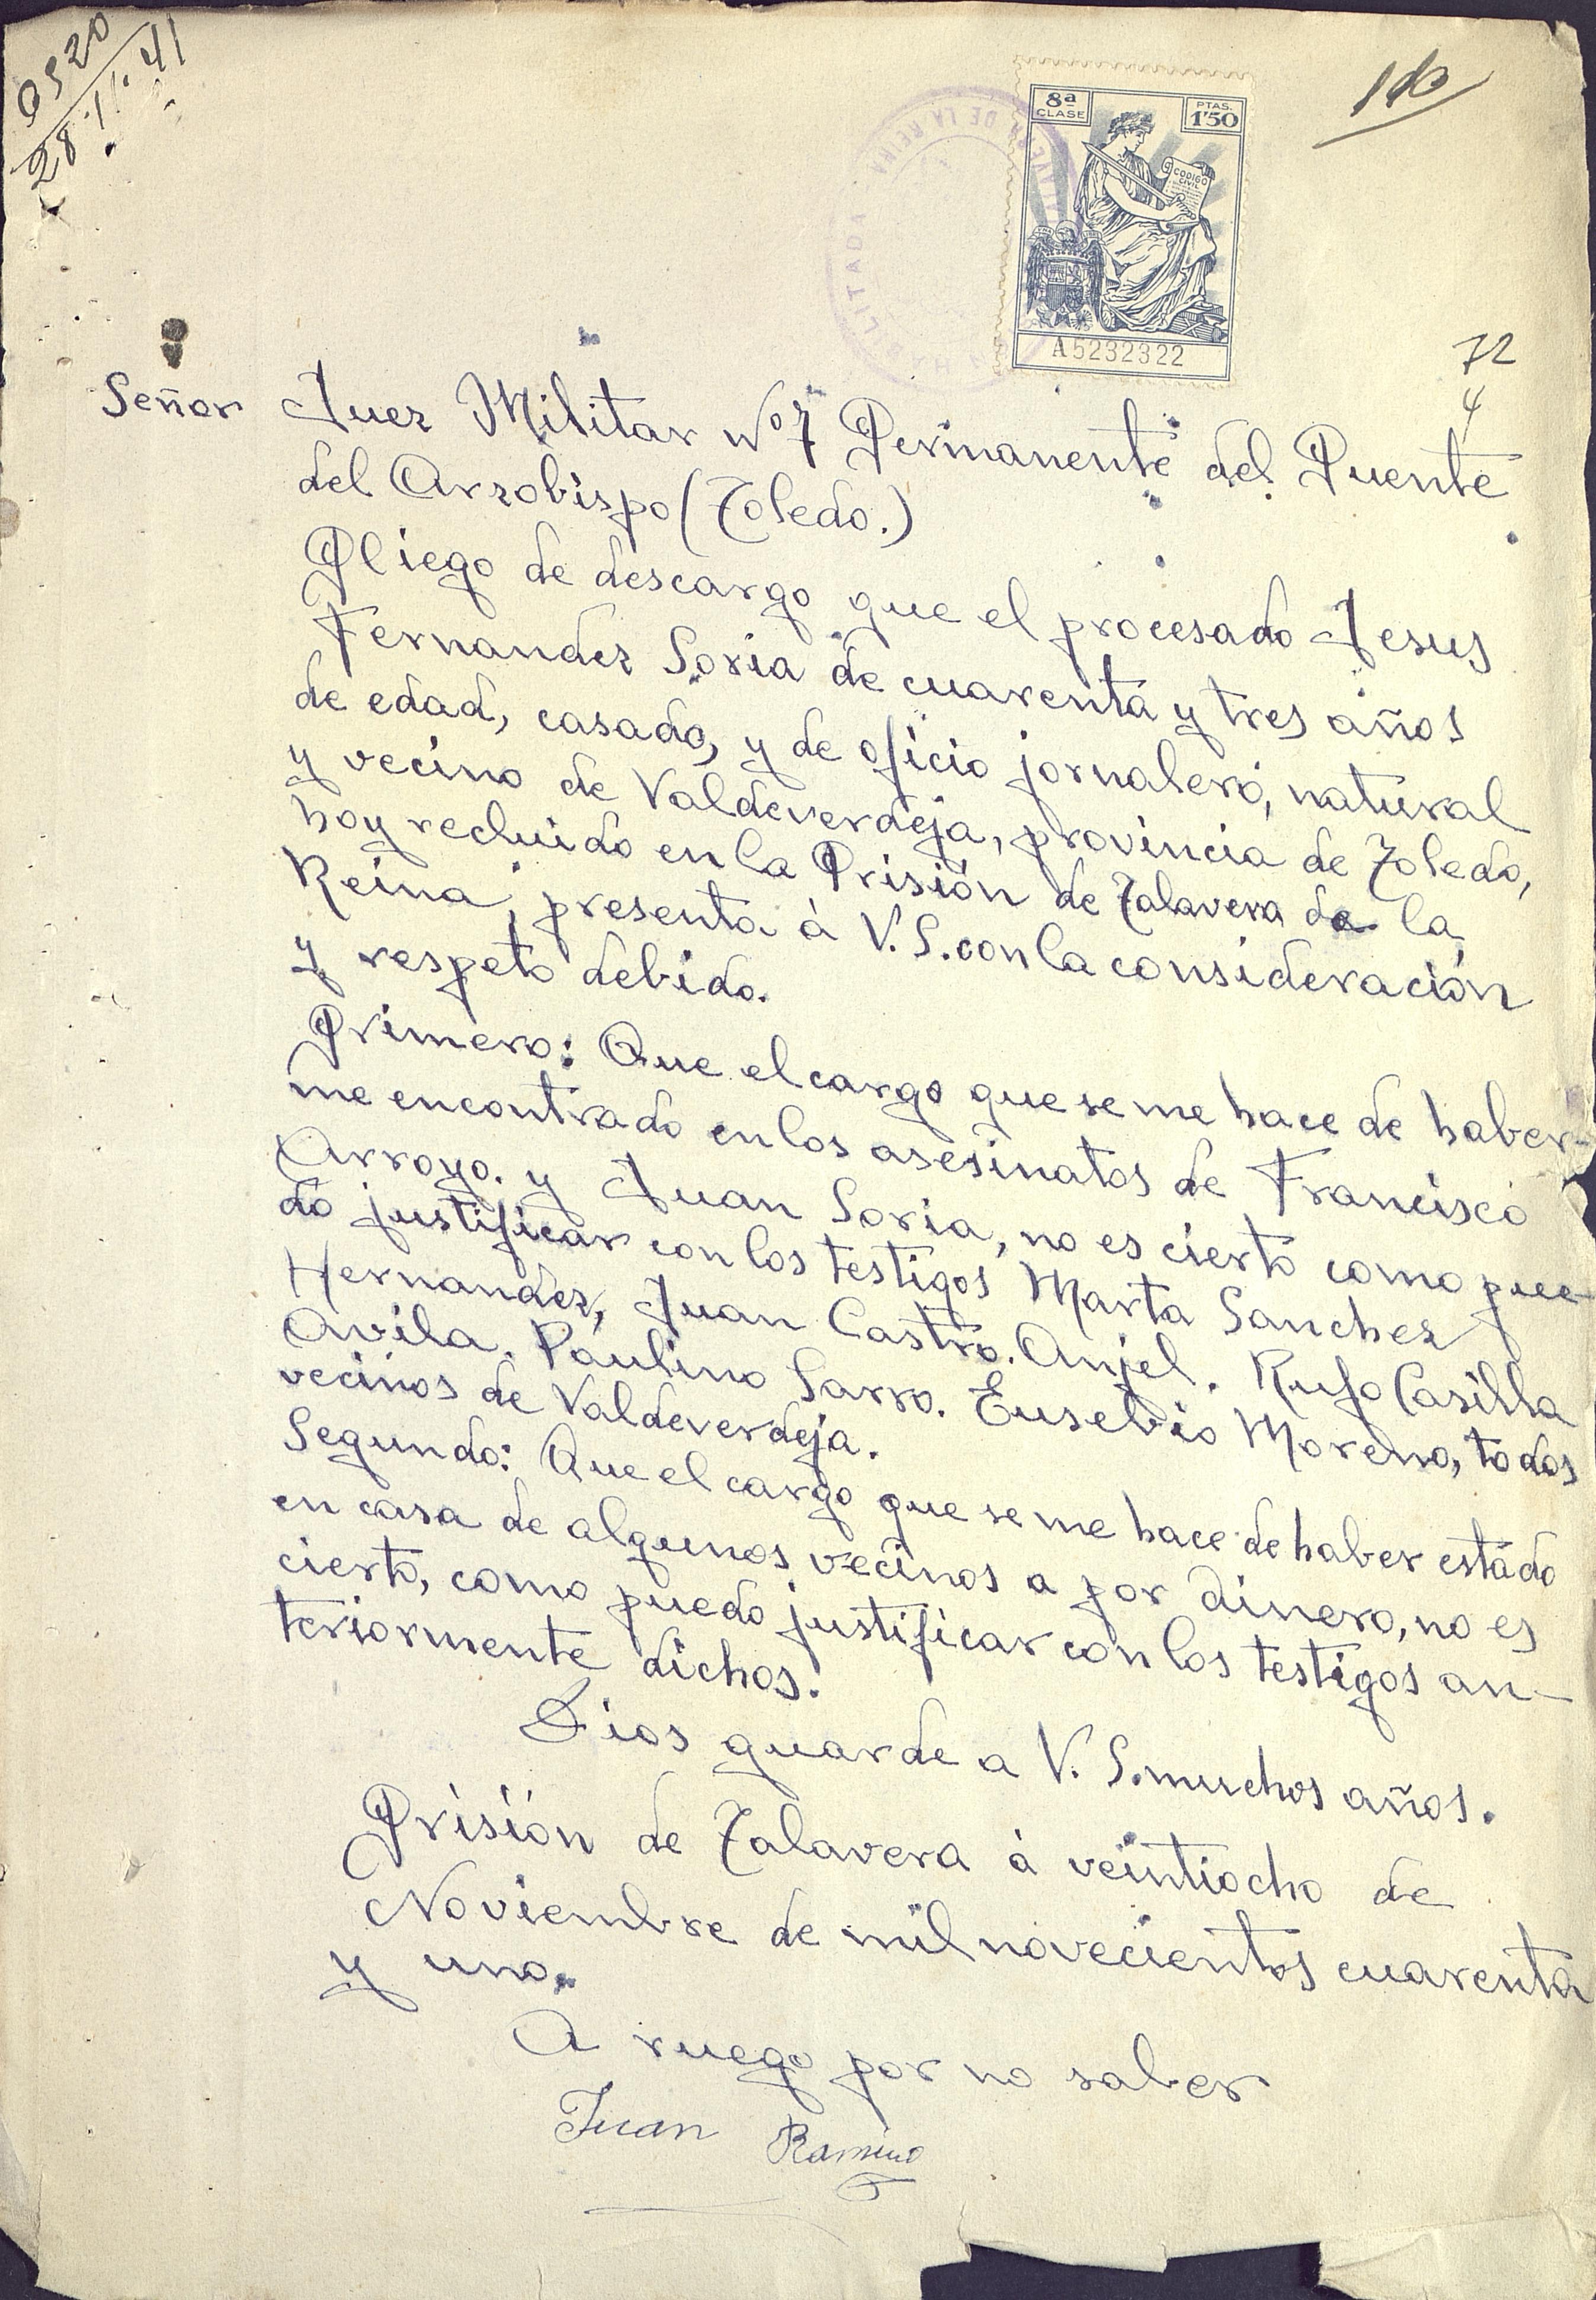 0520
28·11·41
8ª
CLASE
PTAS.
1'50
CODIGO
CIVIL
A5232322
HABILITADA
DE LA REINA
72
4
Señor Juez Militar Nº 7 Permanente del Puente
del Arzobispo (Toledo.)
Pliego de descargo que el procesado Jesus
Fernandez Soria de cuarenta y tres años
de edad, casado, y de oficio jornalero, natural
y vecino de Valdeverdeja, provincia de Toledo,
hoy recluido en la Prisión de Talavera de la
Reina, presenta á V. S. con la consideración
y respeto debido.
Primero: Que el cargo que se me hace de haber-
me encontrado en los asesinatos de Francisco
Arroyo. y Juan Soria, no es cierto como pue-
do justificar con los testigos Marta Sanchez
Hernandez, Juan Castro. Anjel. Rufo Casilla
Avila. Paulino Sarro. Eusebio Moreno, todos
vecinos de Valdeverdeja.
Segundo: Que el cargo que se me hace de haber estado
en casa de algunos vecinos a por dinero, no es
cierto, como puedo justificar con los testigos an-
teriormente dichos.
Dios guarde a V. S. muchos años.
Prisión de Talavera á veintiocho de
Noviembre de mil novecientos cuarenta
y uno.
A ruego por no saber
Juan Ramiro